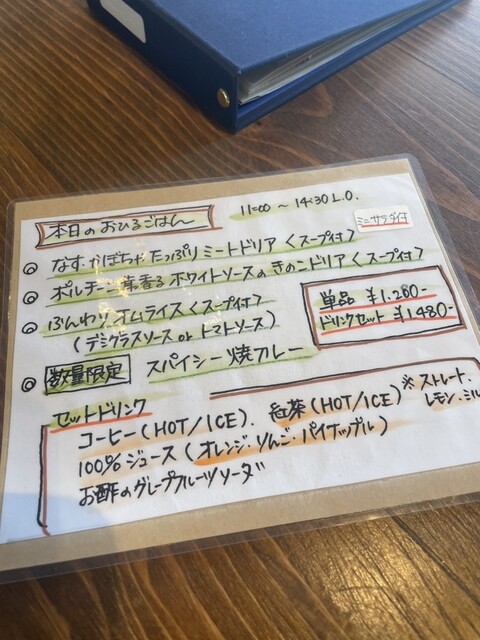 本日のおひるごはん
11:00 〜 14:30 L.O.
ミニサラダ付
◎ なす・かぼちゃたっぷりミートドリア〈スープ付〉
◎ ポルチーニ茸香るホワイトソースのきのこドリア〈スープ付〉
◎ ふんわりオムライス〈スープ付〉
(デミグラスソース or トマトソース)
単品 ¥1.280-
ドリンクセット ¥1480-
◎ 数量限定 スパイシー焼カレー
セットドリンク
コーヒー(HOT/ICE). 紅茶(HOT/ICE)※ストレート.
レモン・ミル
100%ジュース(オレンジ・りんご・パイナップル)
お酢のグレープフルーツソーダ